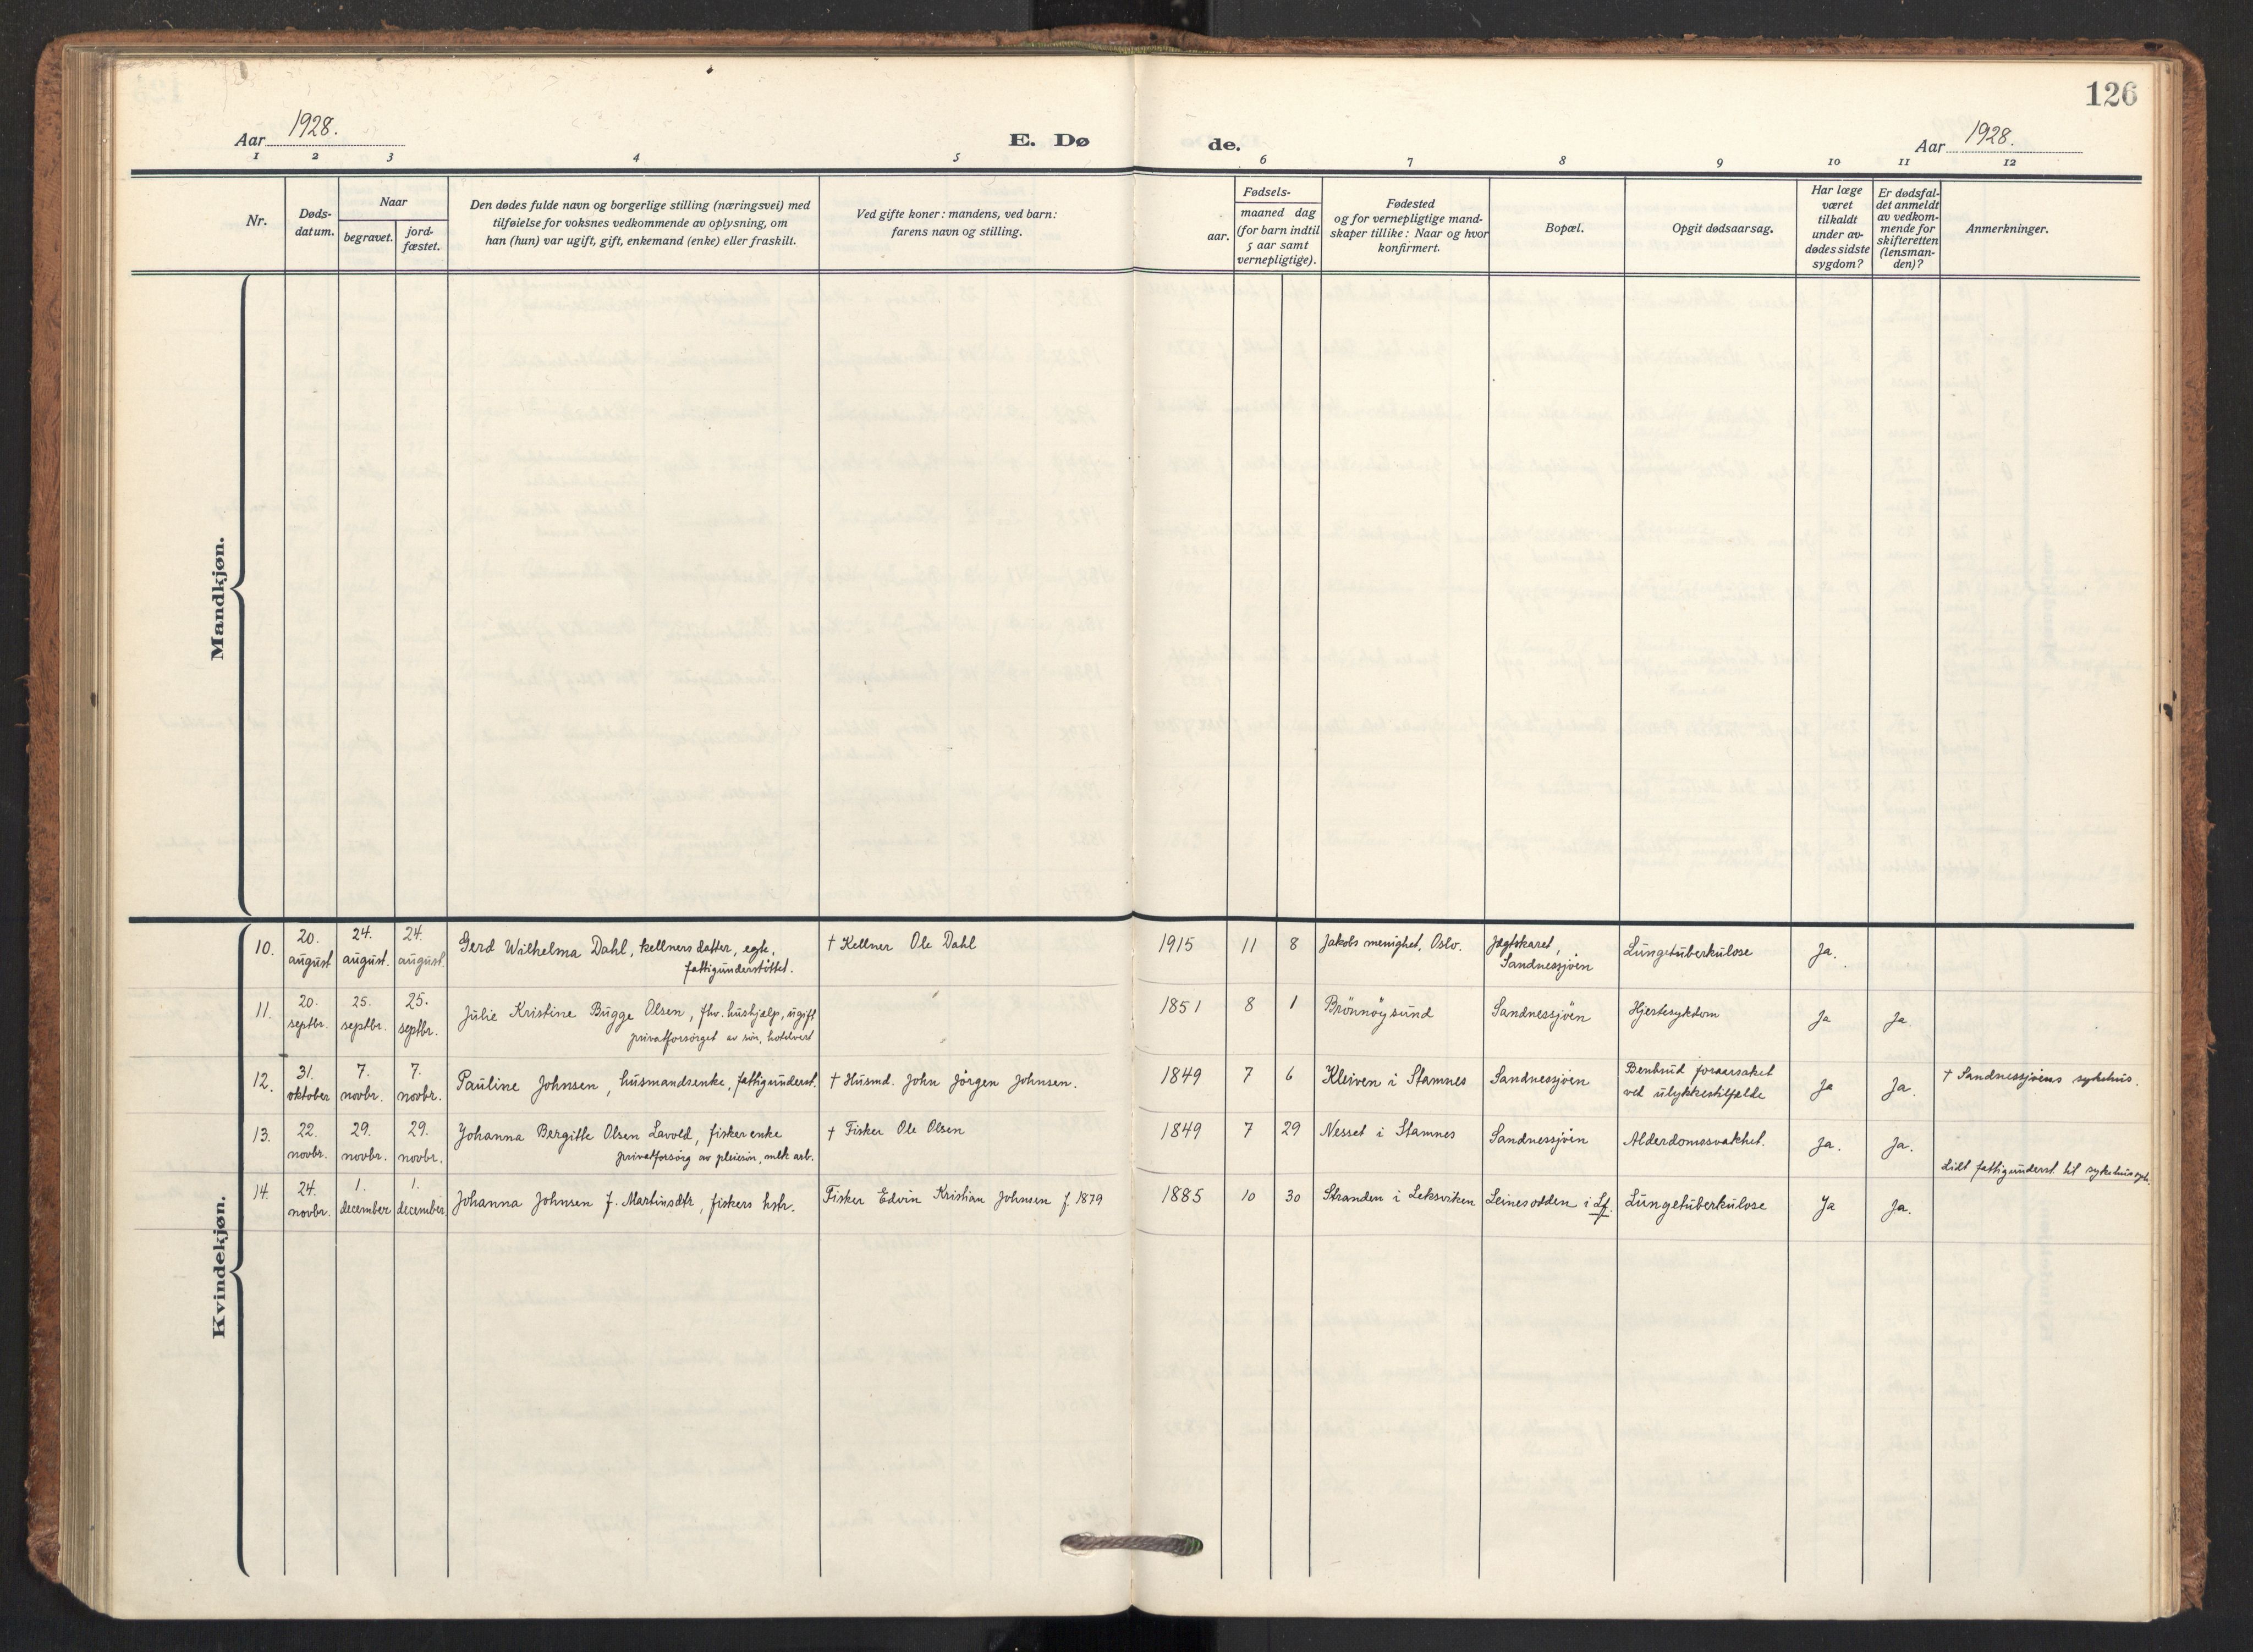 126
Aar 1928.
E. Dø
de.
Aar 1928.
1 2 3 4 5 6 7 8 9 10 11 12
Nr.
Døds-
datum.
Naar
begravet.
jord-
fæstet.
Den dødes fulde navn og borgerlige stilling (næringsvei) med
tilføielse for voksnes vedkommende av oplysning, om
han (hun) var ugift, gift, enkemand (enke) eller fraskilt.
Ved gifte koner: mandens, ved barn:
farens navn og stilling.
Fødsels-
aar.
maaned dag
(for barn indtil
5 aar samt
vernepligtige).
Fødested
og for vernepligtige mand-
skaper tillike: Naar og hvor
konfirmert.
Bopæl.
Opgit dødsaarsag.
Har læge
været
tilkaldt
under av-
dødes sidste
sygdom?
Er dødsfal-
det anmeldt
av vedkom-
mende for
skifteretten
(lensman-
den)?
Anmerkninger.
Mandkjøn.
Kvindekjøn.
10.
20.
august
24.
august.
24.
august.
Gerd Wilhelma Dahl, kellners datter, egte,
fattigunderstöttet.
† Kellner Ole Dahl
1915 11 8
Jakobs menighet, Oslo.
Jægtskaret,
Sandnessjöen
Lungetuberkulose
Ja.
11.
20.
septbr.
25.
septbr.
25.
septbr.
Julie Kristine Bugge Olsen, fhv. hushjælp, ugift
privatforsörget av sön, hotelvert
1851 8 1
Brönnöysund
Sandnessjöen
Hjertesykdom
Ja
Ja.
12.
31.
oktober
7.
novbr.
7.
novbr.
Pauline Johnsen, husmandsenke, fattigunderst.
† Husmd. John Jörgen Johnsen.
1849 7 6
Kleiven i Stamnes
Sandnessjöen
Benbrud foraarsaket
ved ulykkestilfælde
Ja
Ja.
† Sandnessjöens sykehus.
13.
22.
novbr.
29.
novbr.
29.
novbr.
Johanna Bergitte Olsen Lavold, fiskerenke
privatforsörg av pleiesön, mek arb.
† Fisker Ole Olsen
1849 7 29
Nesset i Stamnes
Sandnessjöen
Alderdomssvakhet.
Ja.
Ja.
14.
24.
novbr.
1.
december
1.
december
Johanna Johnsen f. Martinsdtr, fiskers hstr.
Fisker Edvin Kristian Johnsen f. 1879
1885 10 30
Stranden i Leksviken
Leinesodden i Lf.
Lungetuberkulose
Ja
Ja.
Lidt fattigunderst. til sykehus